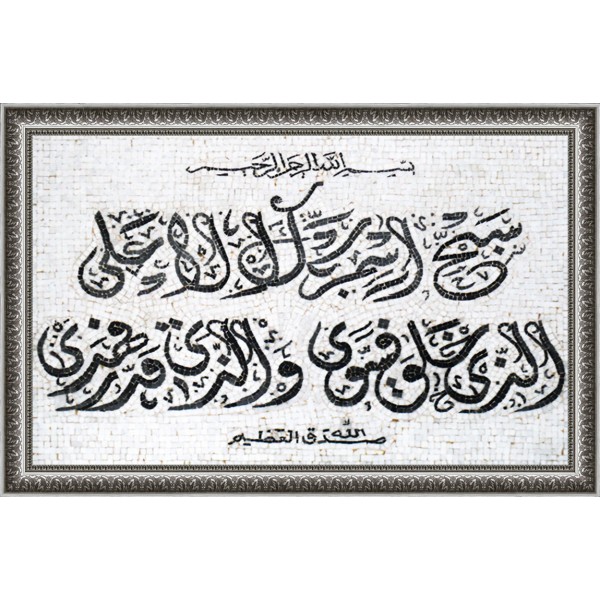 بسم الله الرحمن الرحيم
سبح اسم ربك الاعلى
الذي خلق فسوى والذي قدر فهدى
صدق الله العظيم